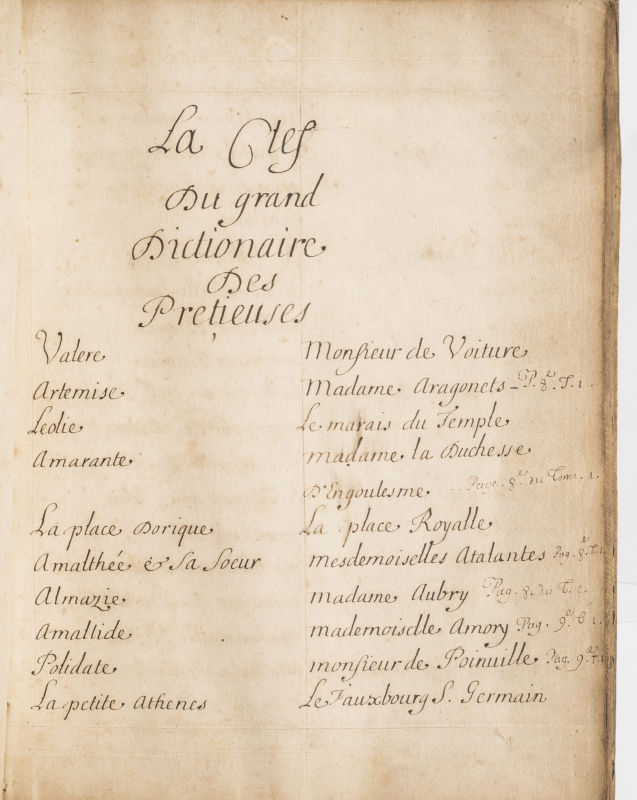 La Clef
Du grand
Dictionaire
Des
Pretieuses
Valere Monsieur de Voiture
Artemise Madame Aragonets - P. 8.e T. 1.
Leolie Le marais du Temple
Amarante madame la Duchesse
D'Engoulesme Page. 8.e du Tome. 1.
La place Dorique La place Royalle
Amalthée & Sa Soeur mesdemoiselles Atalantes Pag. 8.e T. 1.
Almazie madame Aubry Pag. 8. du T. 1.
Amaltide mademoiselle Amory Pag. 9.e T. 1.
Polidate monsieur de Poinville Pag. 9.e T. 1.
La petite Athenes Le Fauxbourg S. Germain